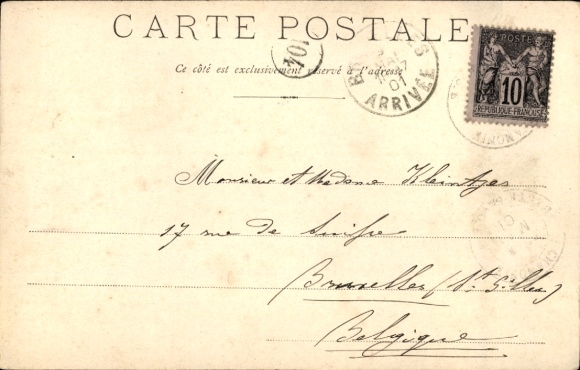 CARTE POSTALE
Ce côté est exclusivement réservé à l'adresse
104
ARRIVÉE
01
POSTES
10
RÉPUBLIQUE FRANÇAISE
Monsieur et Madame Kleintjes
17 rue de Suisse
Bruxelles (St Gilles)
Belgique